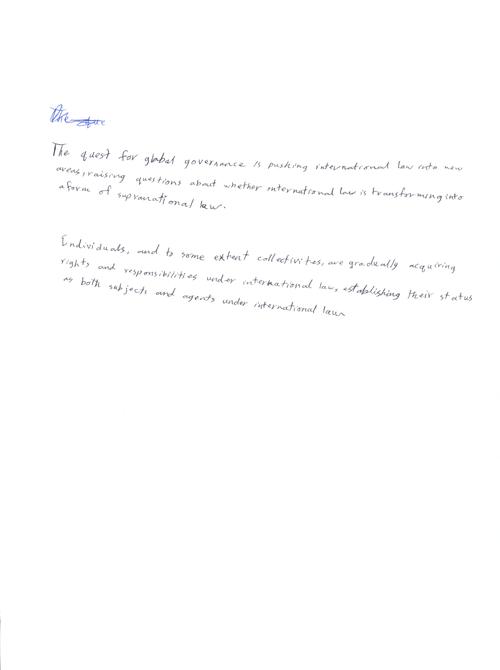 The quest for global governance is pushing international law into new
areas, raising questions about whether international law is transforming into
a form of supranational law.
Individuals, and to some extent collectivities, are gradually acquiring
rights and responsibilities under international law, establishing their status
as both subjects and agents under international law